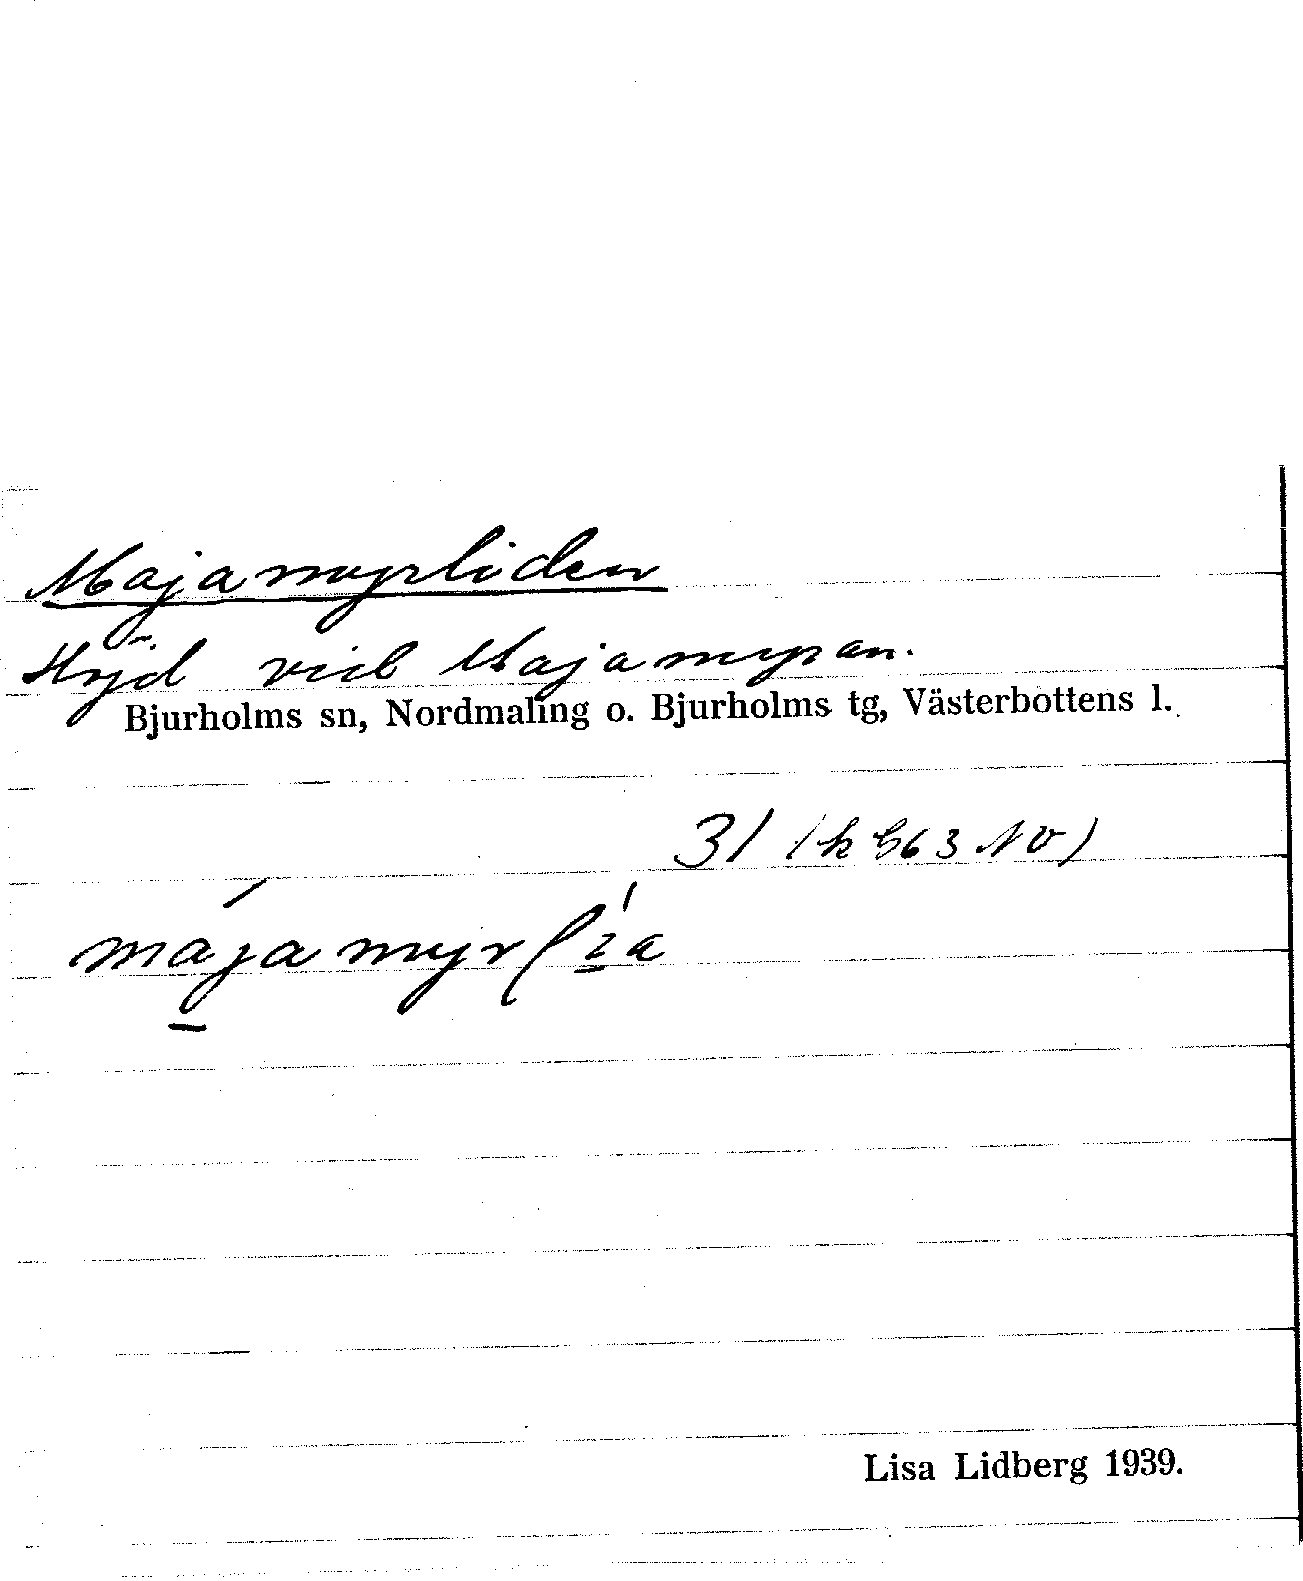 Majamyrliden
Höjd vid Majamyran.
Bjurholms sn, Nordmaling o. Bjurholms tg, Västerbottens l.
31 (k 563 NV)
májamyrlia
Lisa Lidberg 1939.